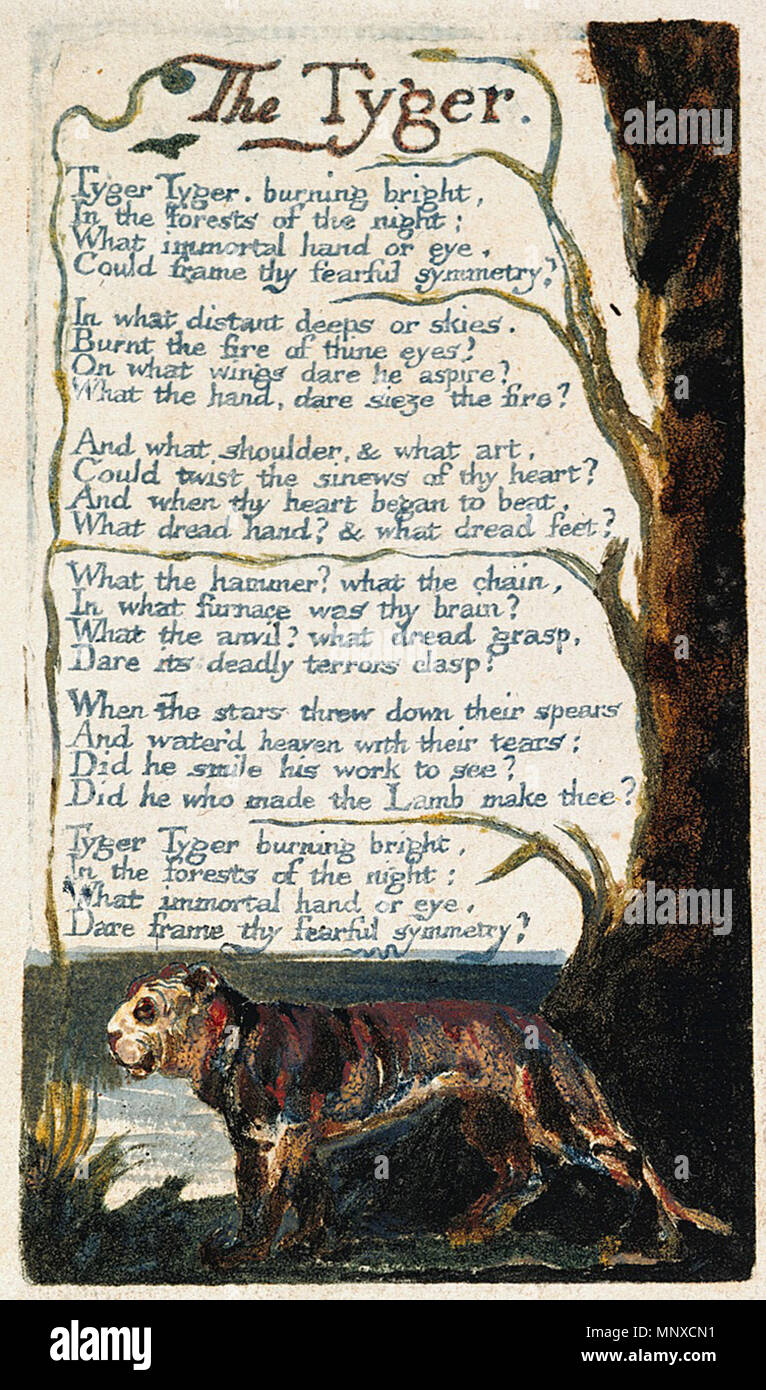 The Tyger.
Tyger Tyger. burning bright,
In the forests of the night;
What immortal hand or eye,
Could frame thy fearful symmetry?
In what distant deeps or skies.
Burnt the fire of thine eyes?
On what wings dare he aspire?
What the hand, dare sieze the fire?
And what shoulder, & what art,
Could twist the sinews of thy heart?
And when thy heart began to beat,
What dread hand? & what dread feet?
What the hammer? what the chain,
In what furnace was thy brain?
What the anvil? what dread grasp,
Dare its deadly terrors clasp?
When the stars threw down their spears
And water'd heaven with their tears:
Did he smile his work to see?
Did he who made the Lamb make thee?
Tyger Tyger burning bright,
In the forests of the night:
What immortal hand or eye,
Dare frame thy fearful symmetry?
alamy
alamy
alamy
a
a
a
alamy
Image ID: MNXCN1
www.alamy.com